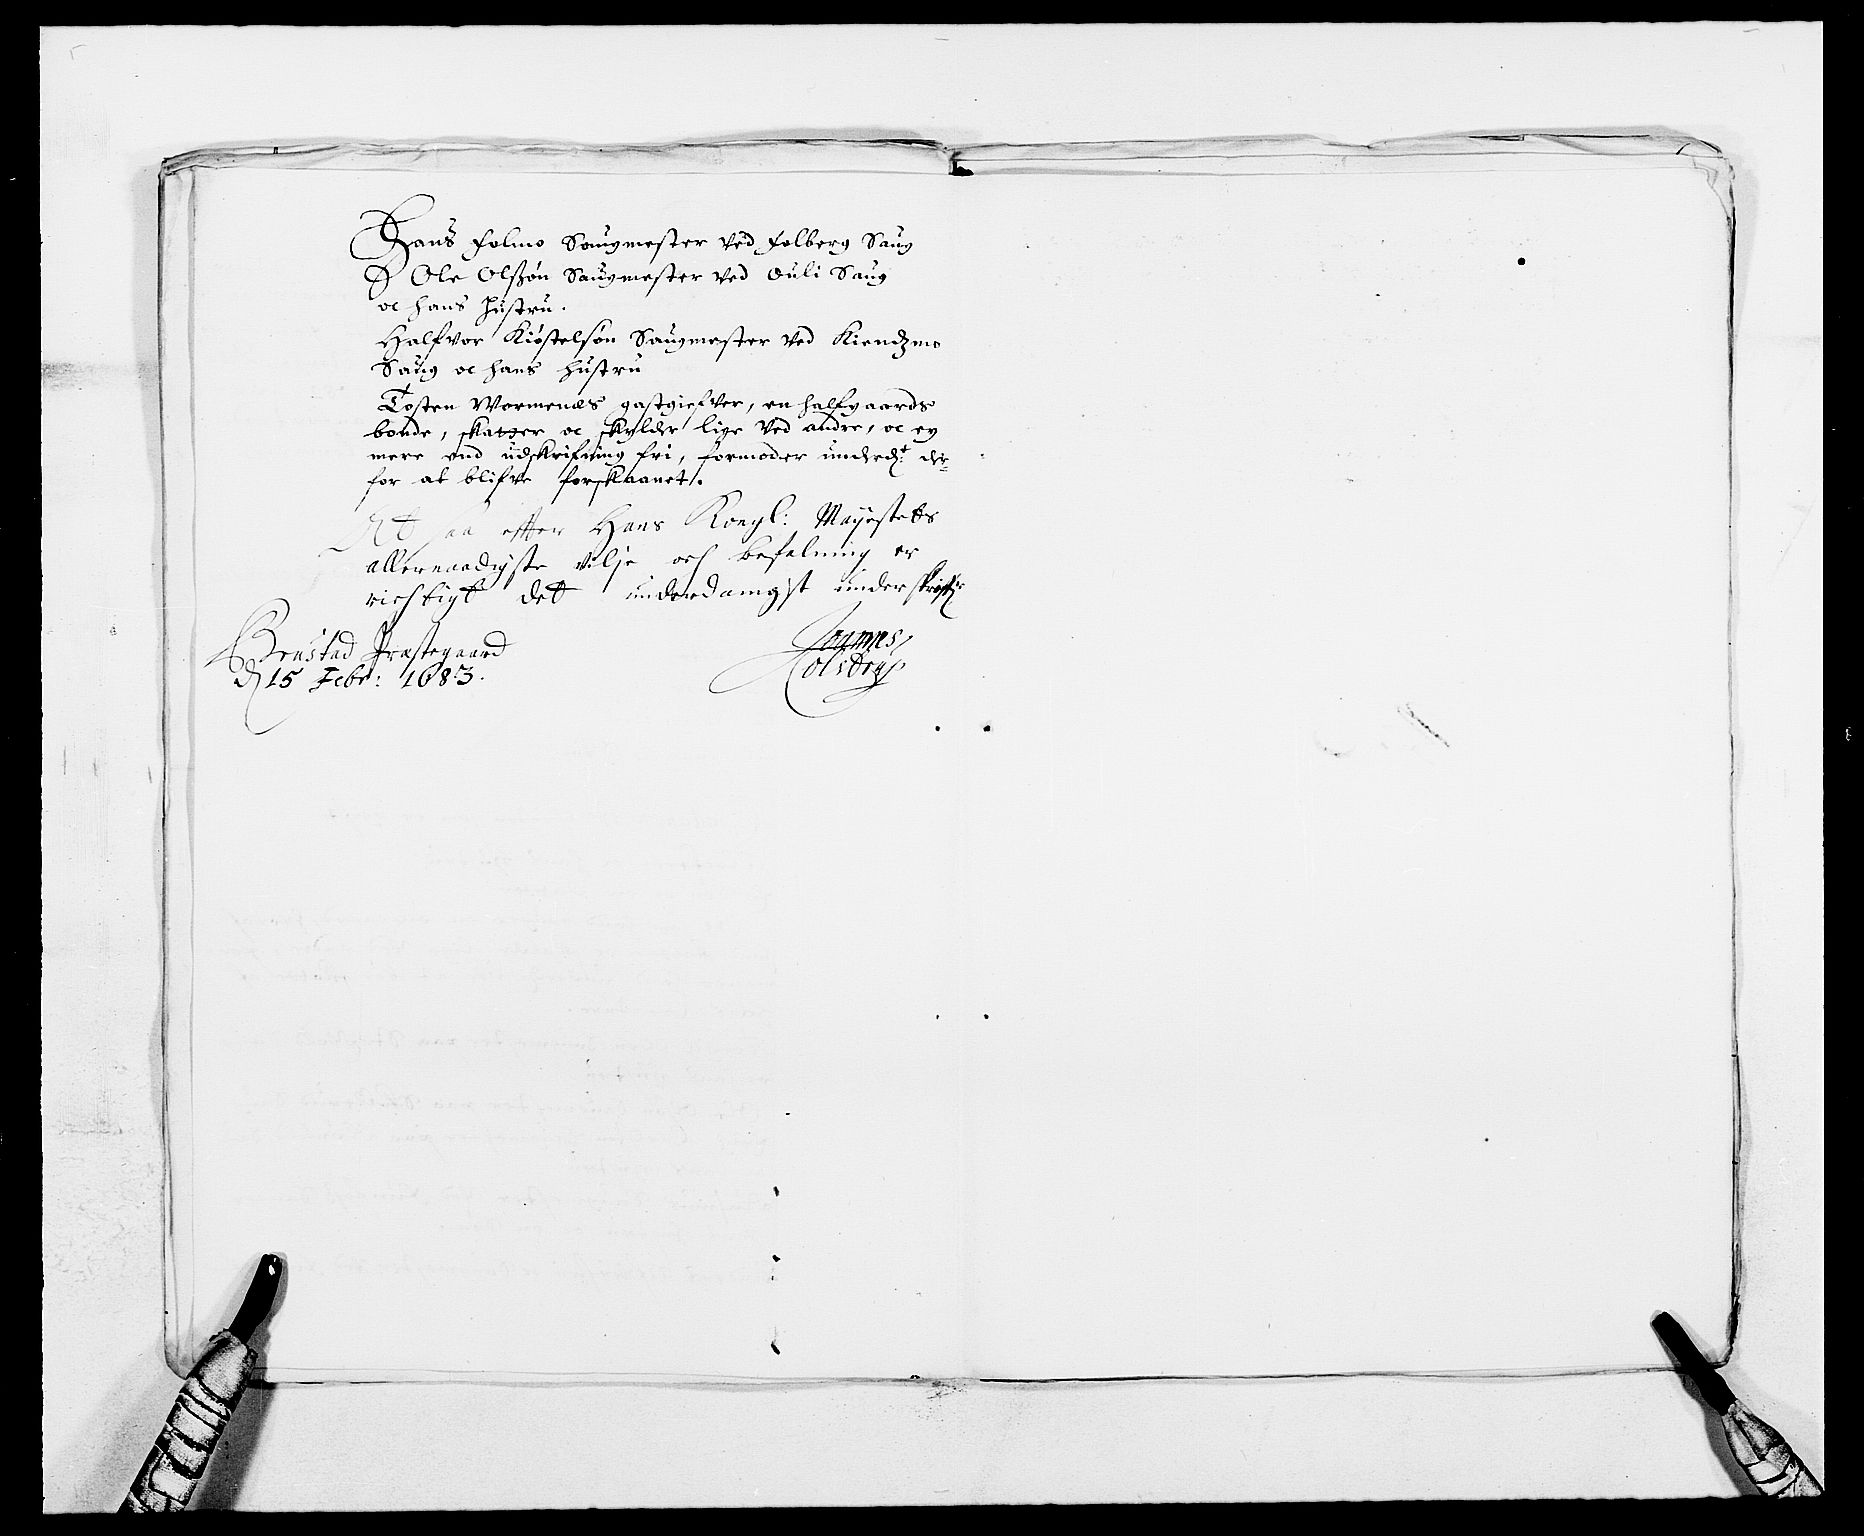 Hans Folmo Saugmester ved Folberg Saug
Ole Olsßøn Saugmester ved Ouli Saug
oc hans hustru.
Halfvor Kiøstelsøn Saugmester ved Kiendzmo
Saug oc hans hustru
Tosten Wormenæs gastgiefver, en halfgaards
bonde, skatter oc skylder lige ved andre, oc ey
mere end udskrifning fri, formoder underd:t der-
for at blifve forskaanet.
At saa effter Hans Kongl: Mayestetts
allernaadigste vilje och befalning er
richtigt det underdanigst underskrifver
Præstegaard
d 15 Febr: 1683.
Joannes